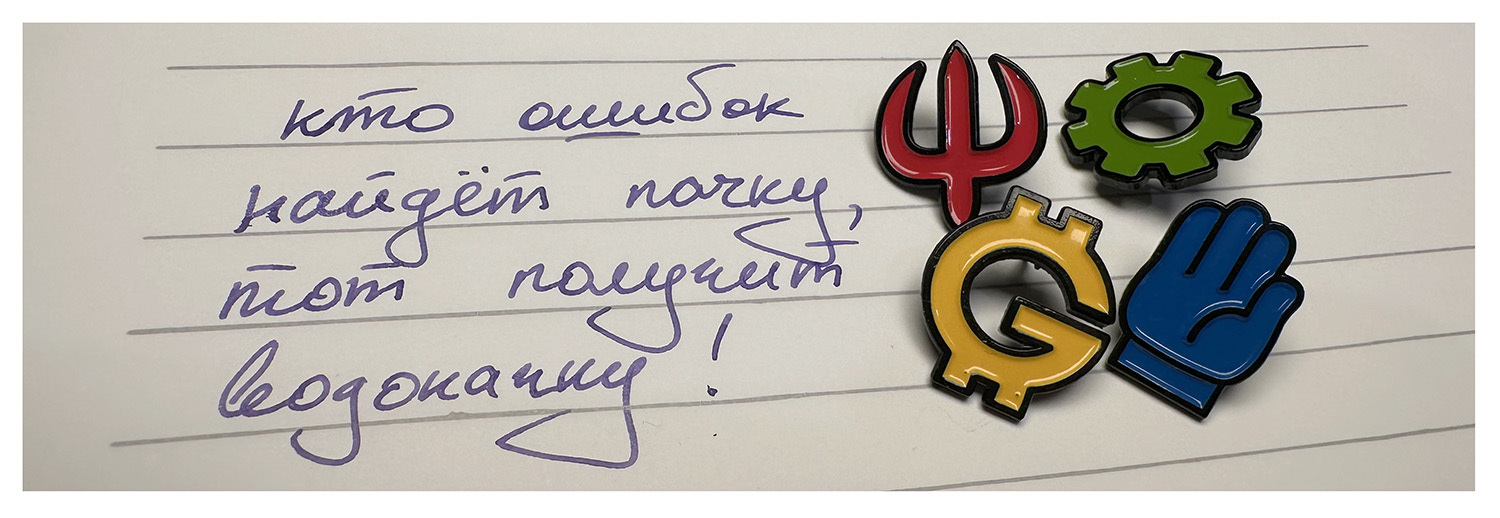 кто ошибок
найдёт пачку,
тот получит
водокачку!